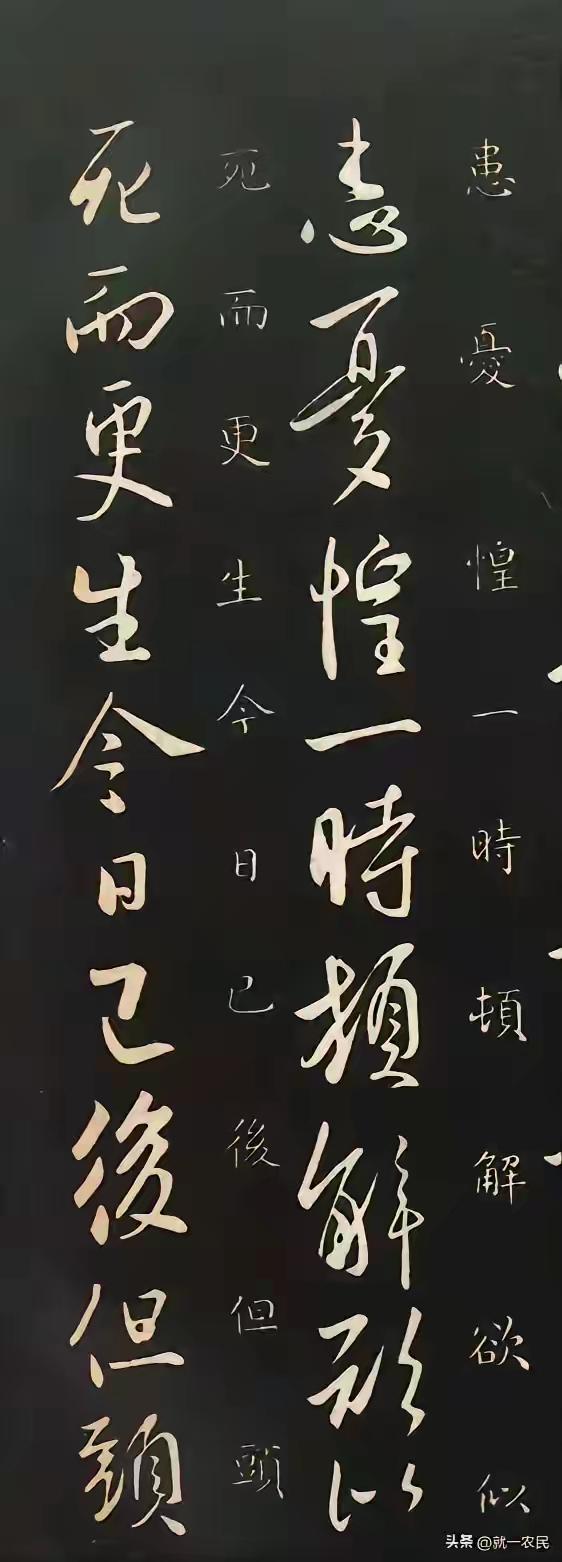 患憂惶一時頓解欲似
患憂惶一時頓解欲似
死而更生今日已後但頭
死而更生今日已後但頭
头条 @就一农民